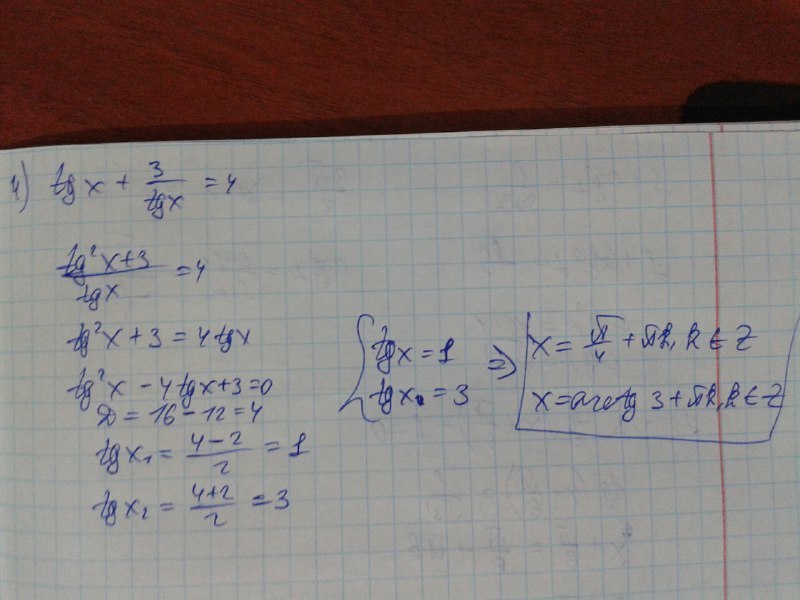 4) tg x + 3/tg x = 4
(tg²x+3)/tg x = 4
tg²x + 3 = 4 tg x
tg²x - 4 tg x + 3 = 0
D = 16 - 12 = 4
tg x₁ = (4-2)/2 = 1
tg x₂ = (4+2)/2 = 3
{ tg x = 1
tg x = 3
=> [ x = π/4 + πk, k ∈ Z
x = arctg 3 + πk, k ∈ Z